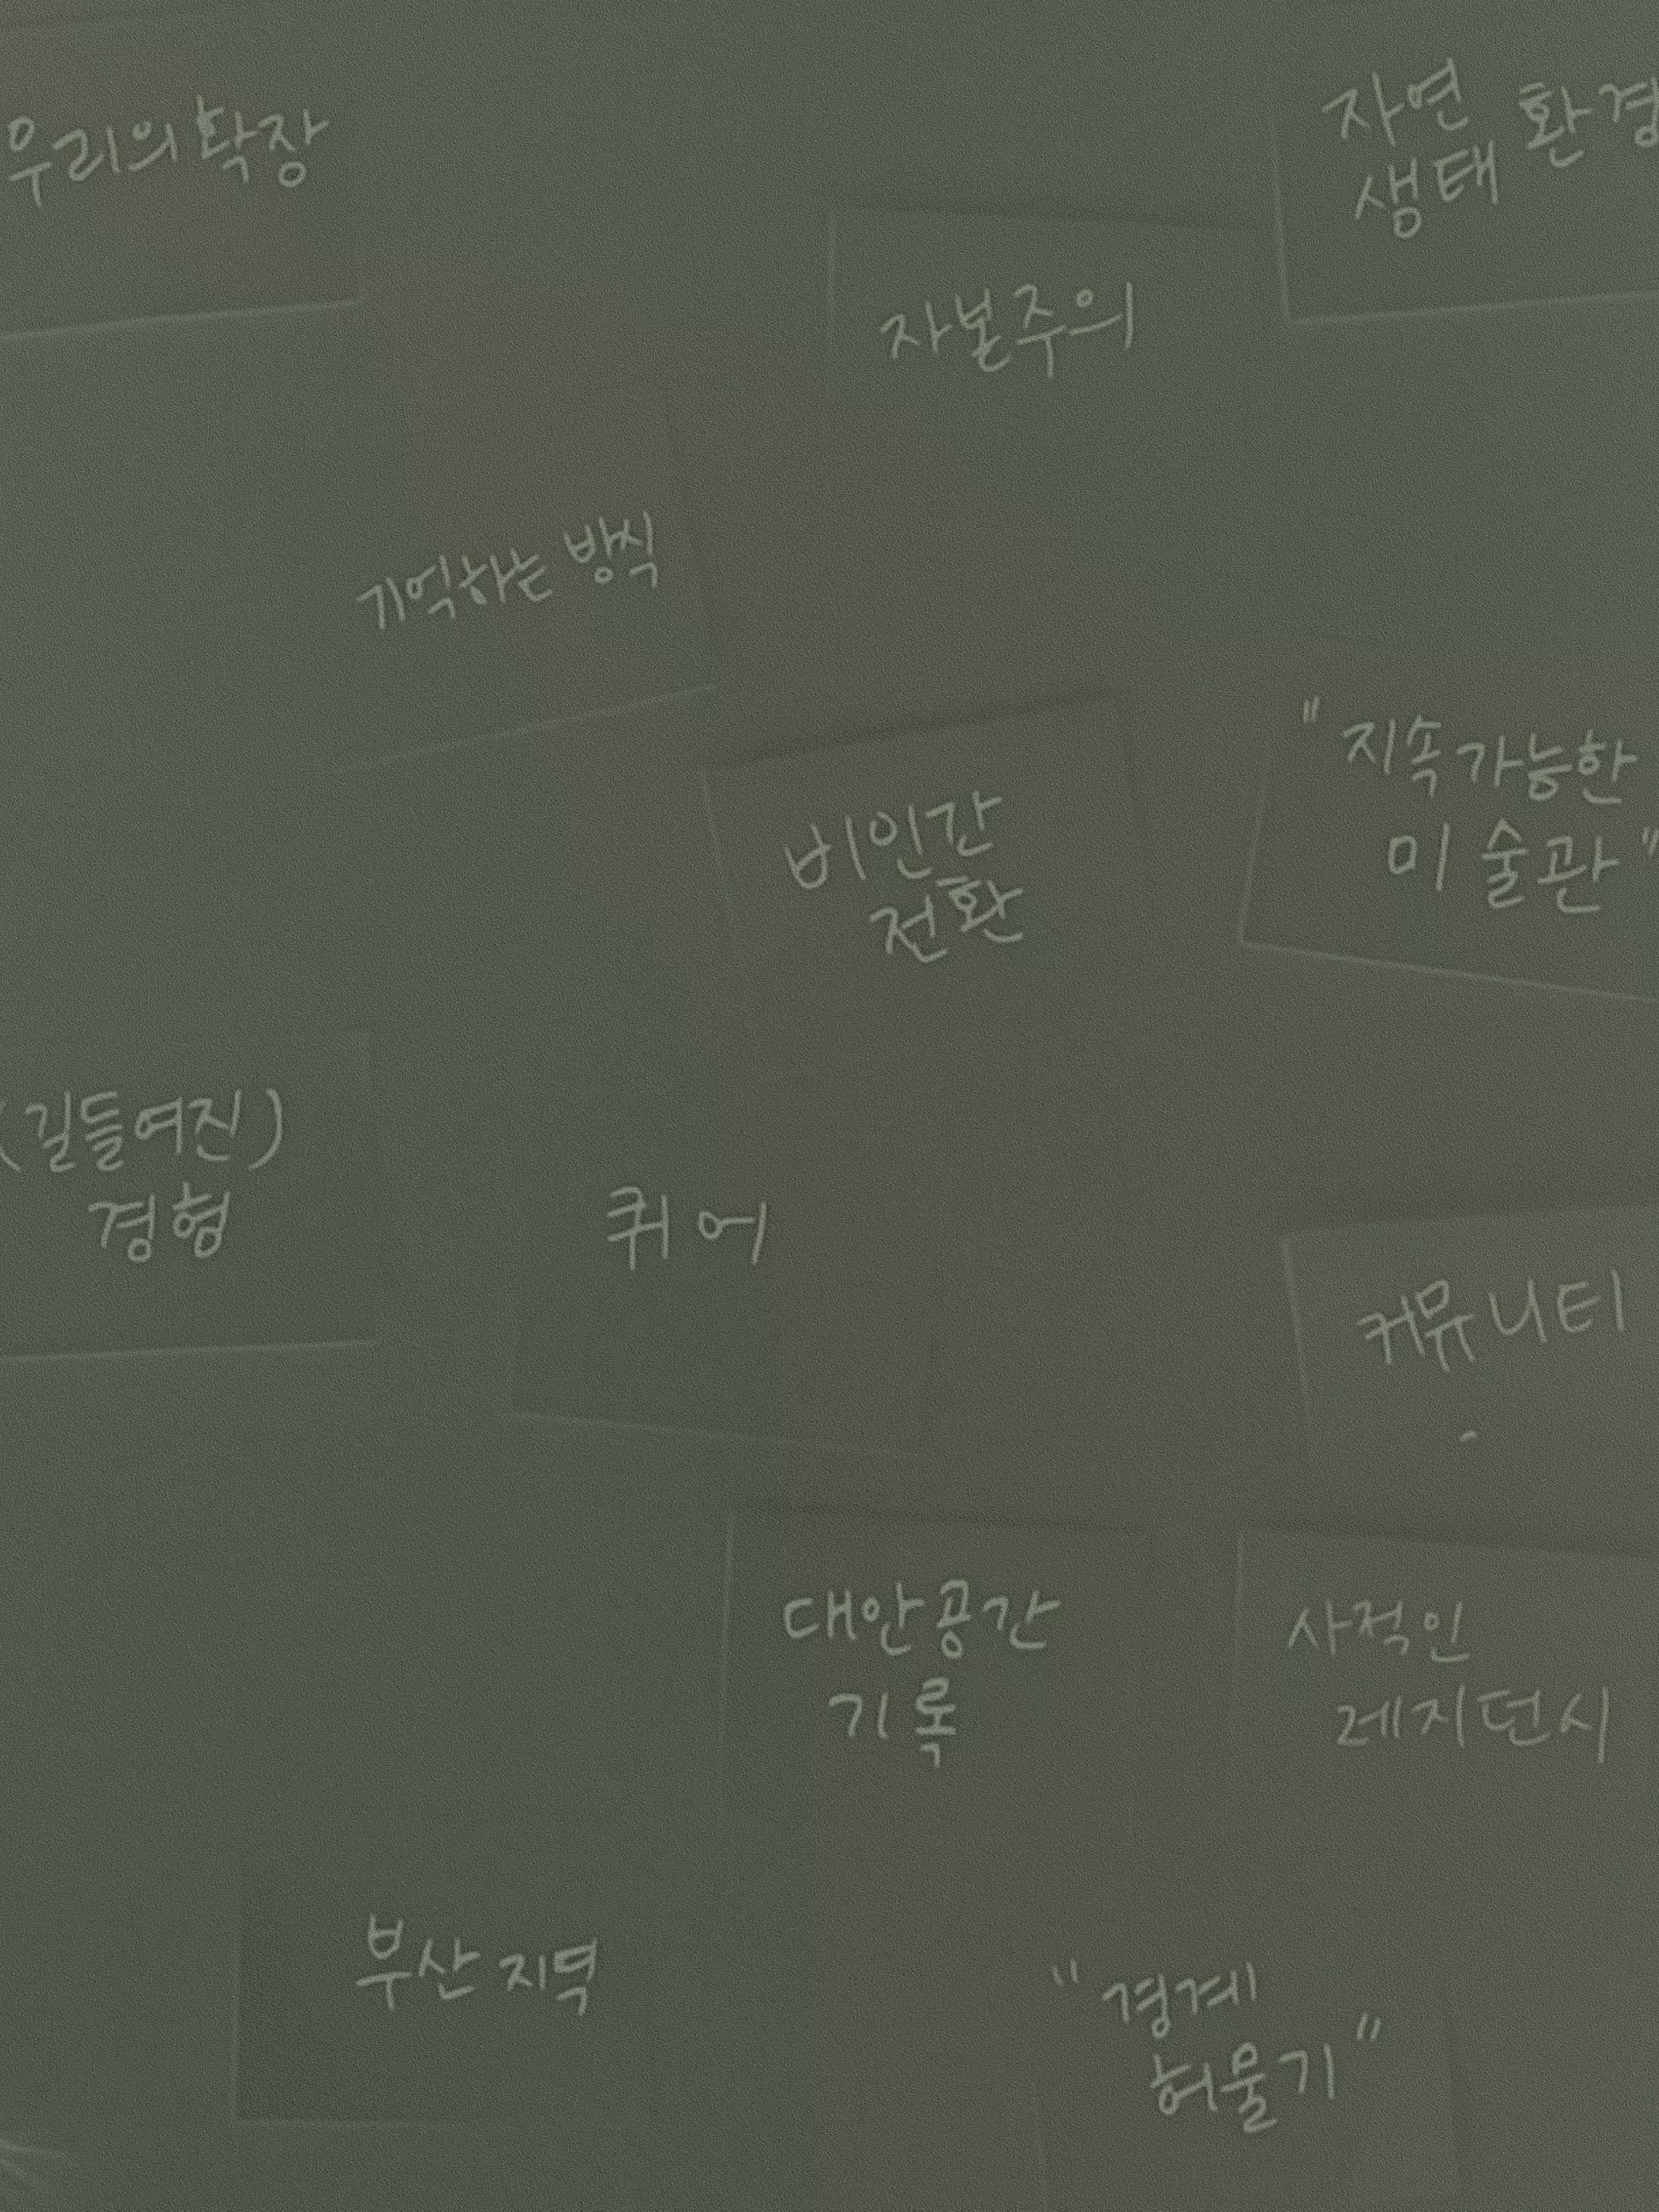 우리의 확장
자연 환경
생태
자본주의
기억하는 방식
"지속가능한
미술관"
비인간
전환
(길들여진)
경험
퀴어
커뮤니티
대안공간
기록
사적인
레지던시
부산 지역
"경계
허물기"